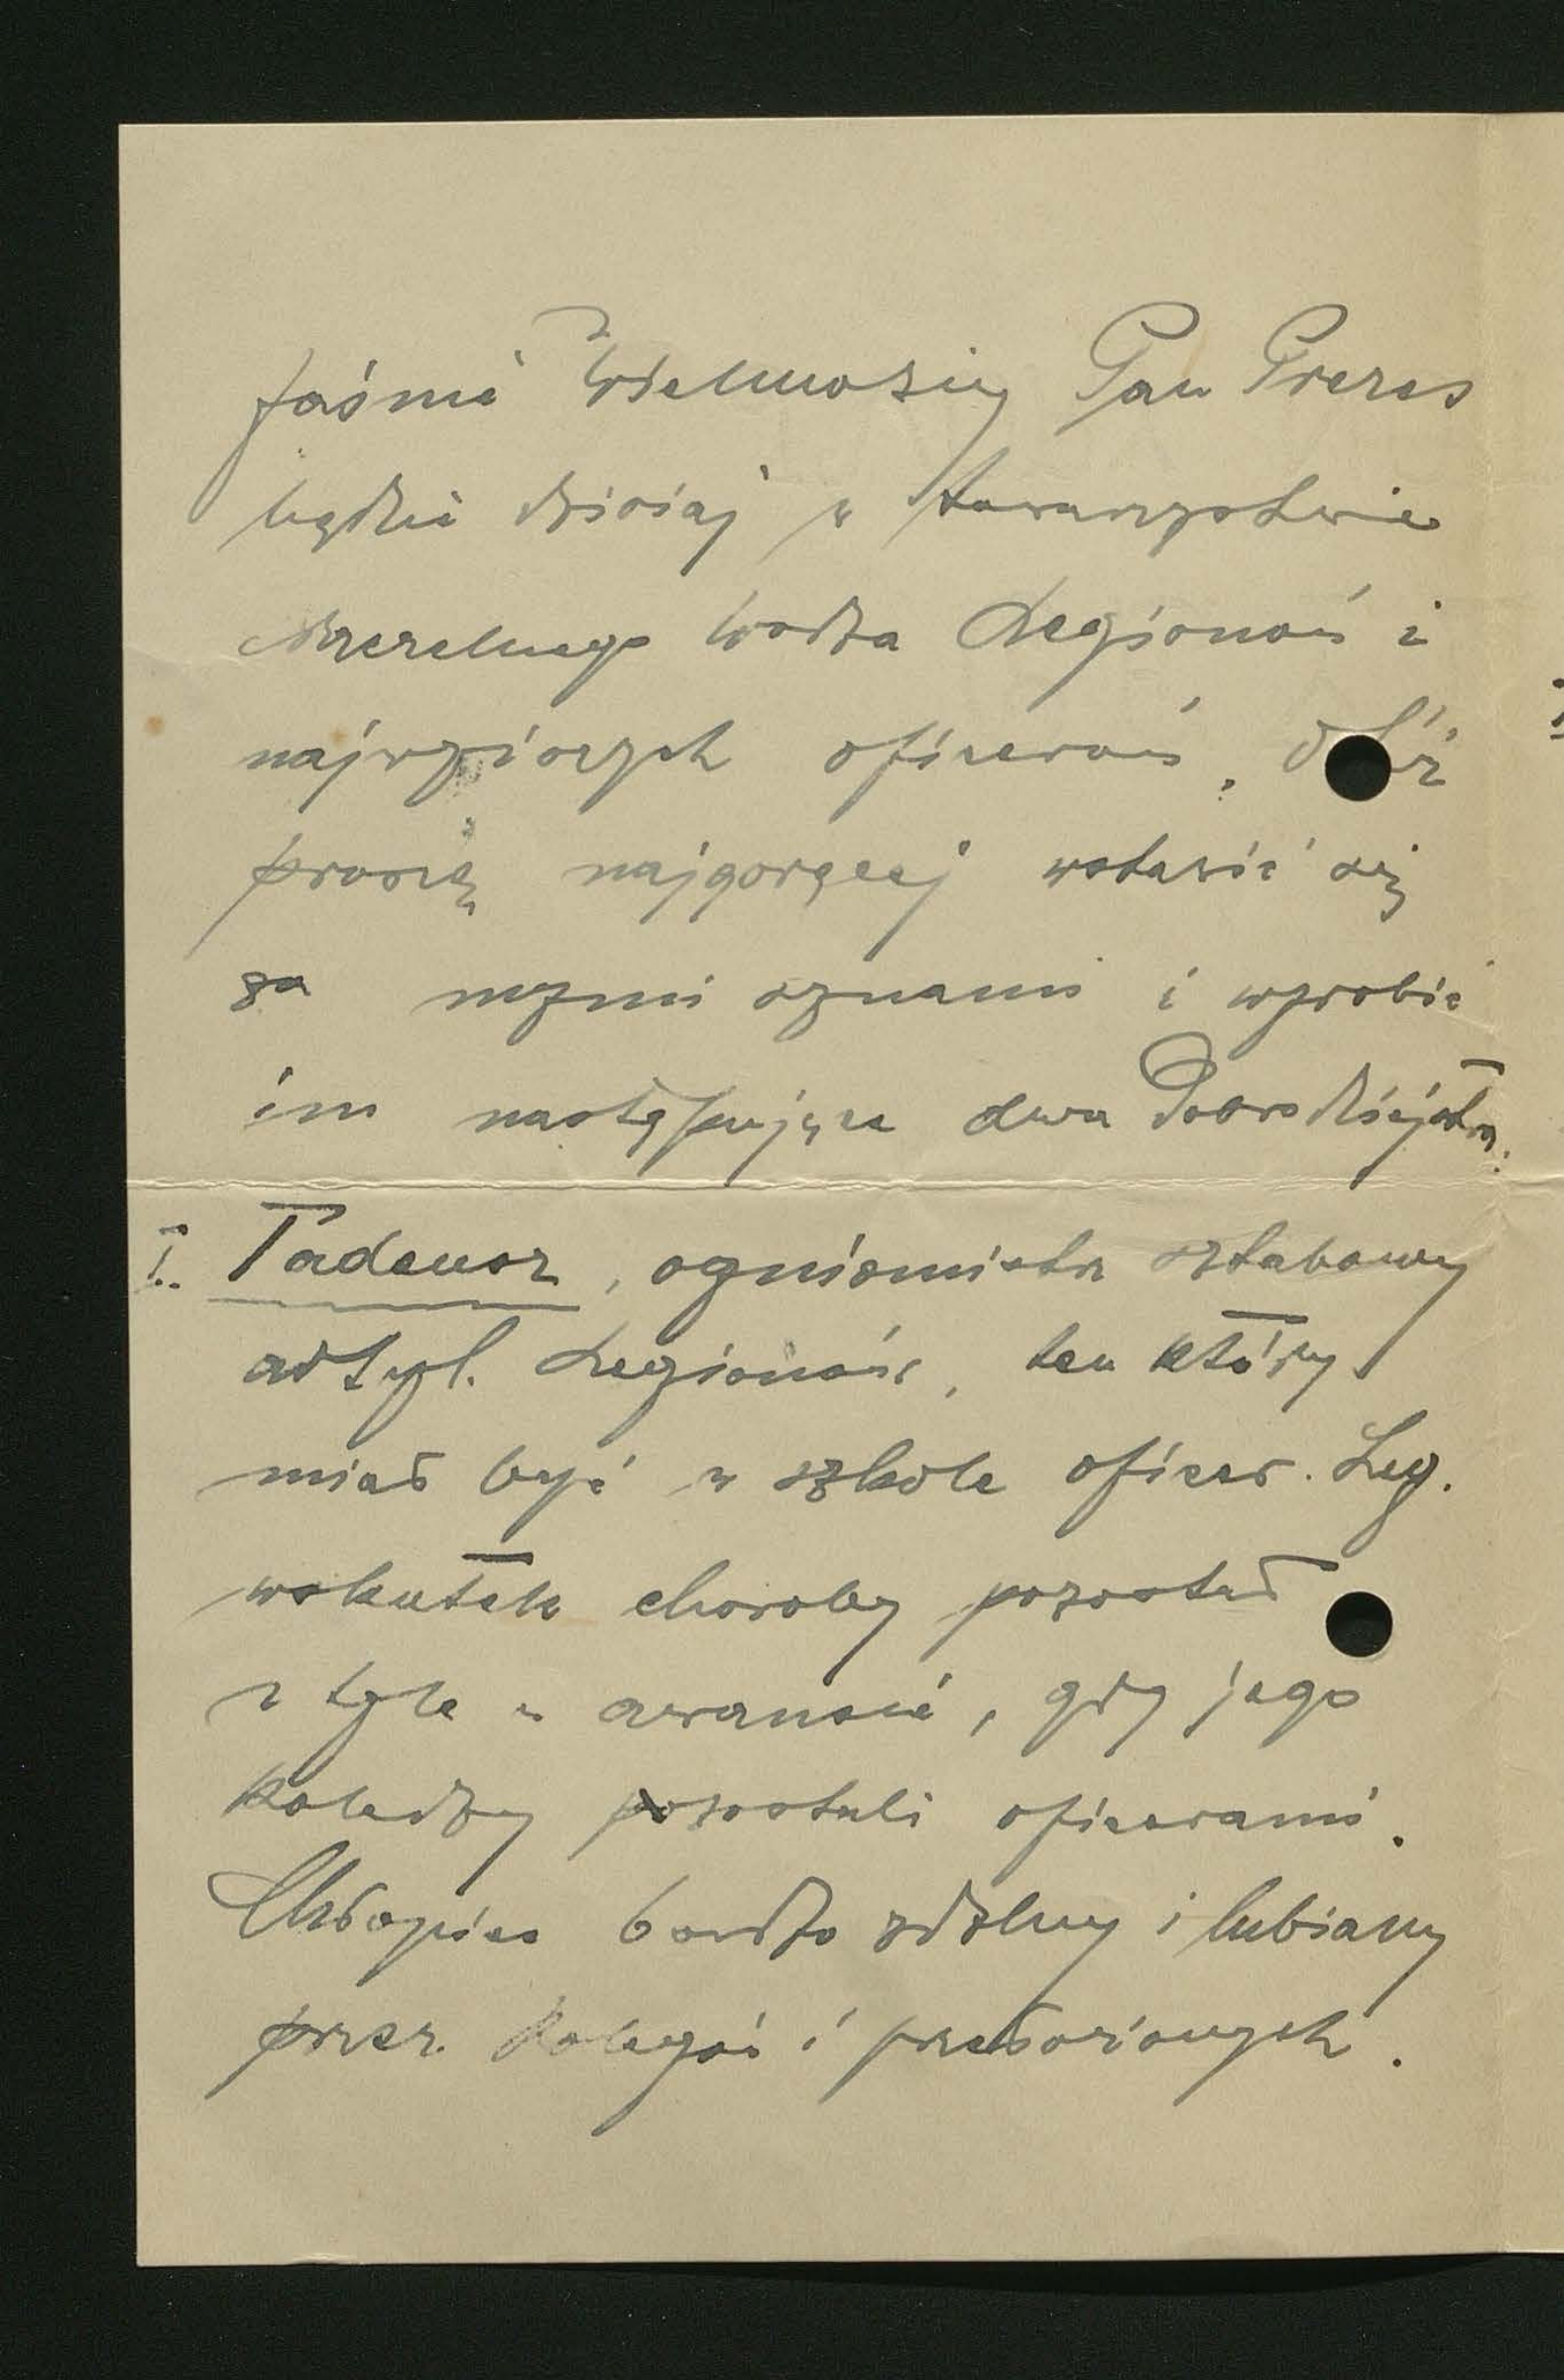 Jaśnie Wielmożny Pan Prezes
będzie dzisiaj w towarzystwie
Naczelnego Wodza Legionów i
najwyższych oficerów,
proszę najgoręcej wstawić się
za mymi synami i wyrobić
im następujące dwa Dobrodziejstwa:
I. Tadeusz, ogniomistrz sztabowy
artyl. Legionów, ten który
miał być w szkole oficer. Leg.
wskutek choroby pozostał
w tyle w awansie, gdy jego
koledzy zostali oficerami.
Chłopiec bardzo zdolny i lubiany
przez kolegów i przełożonych.